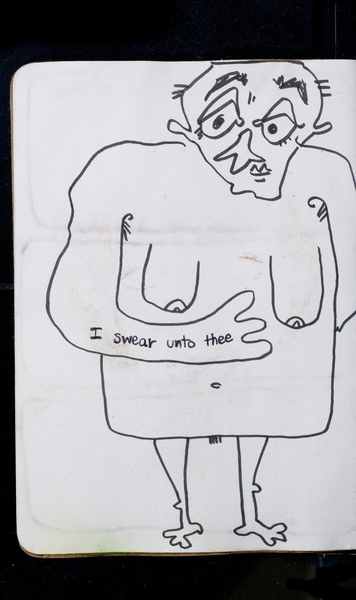 I swear unto thee